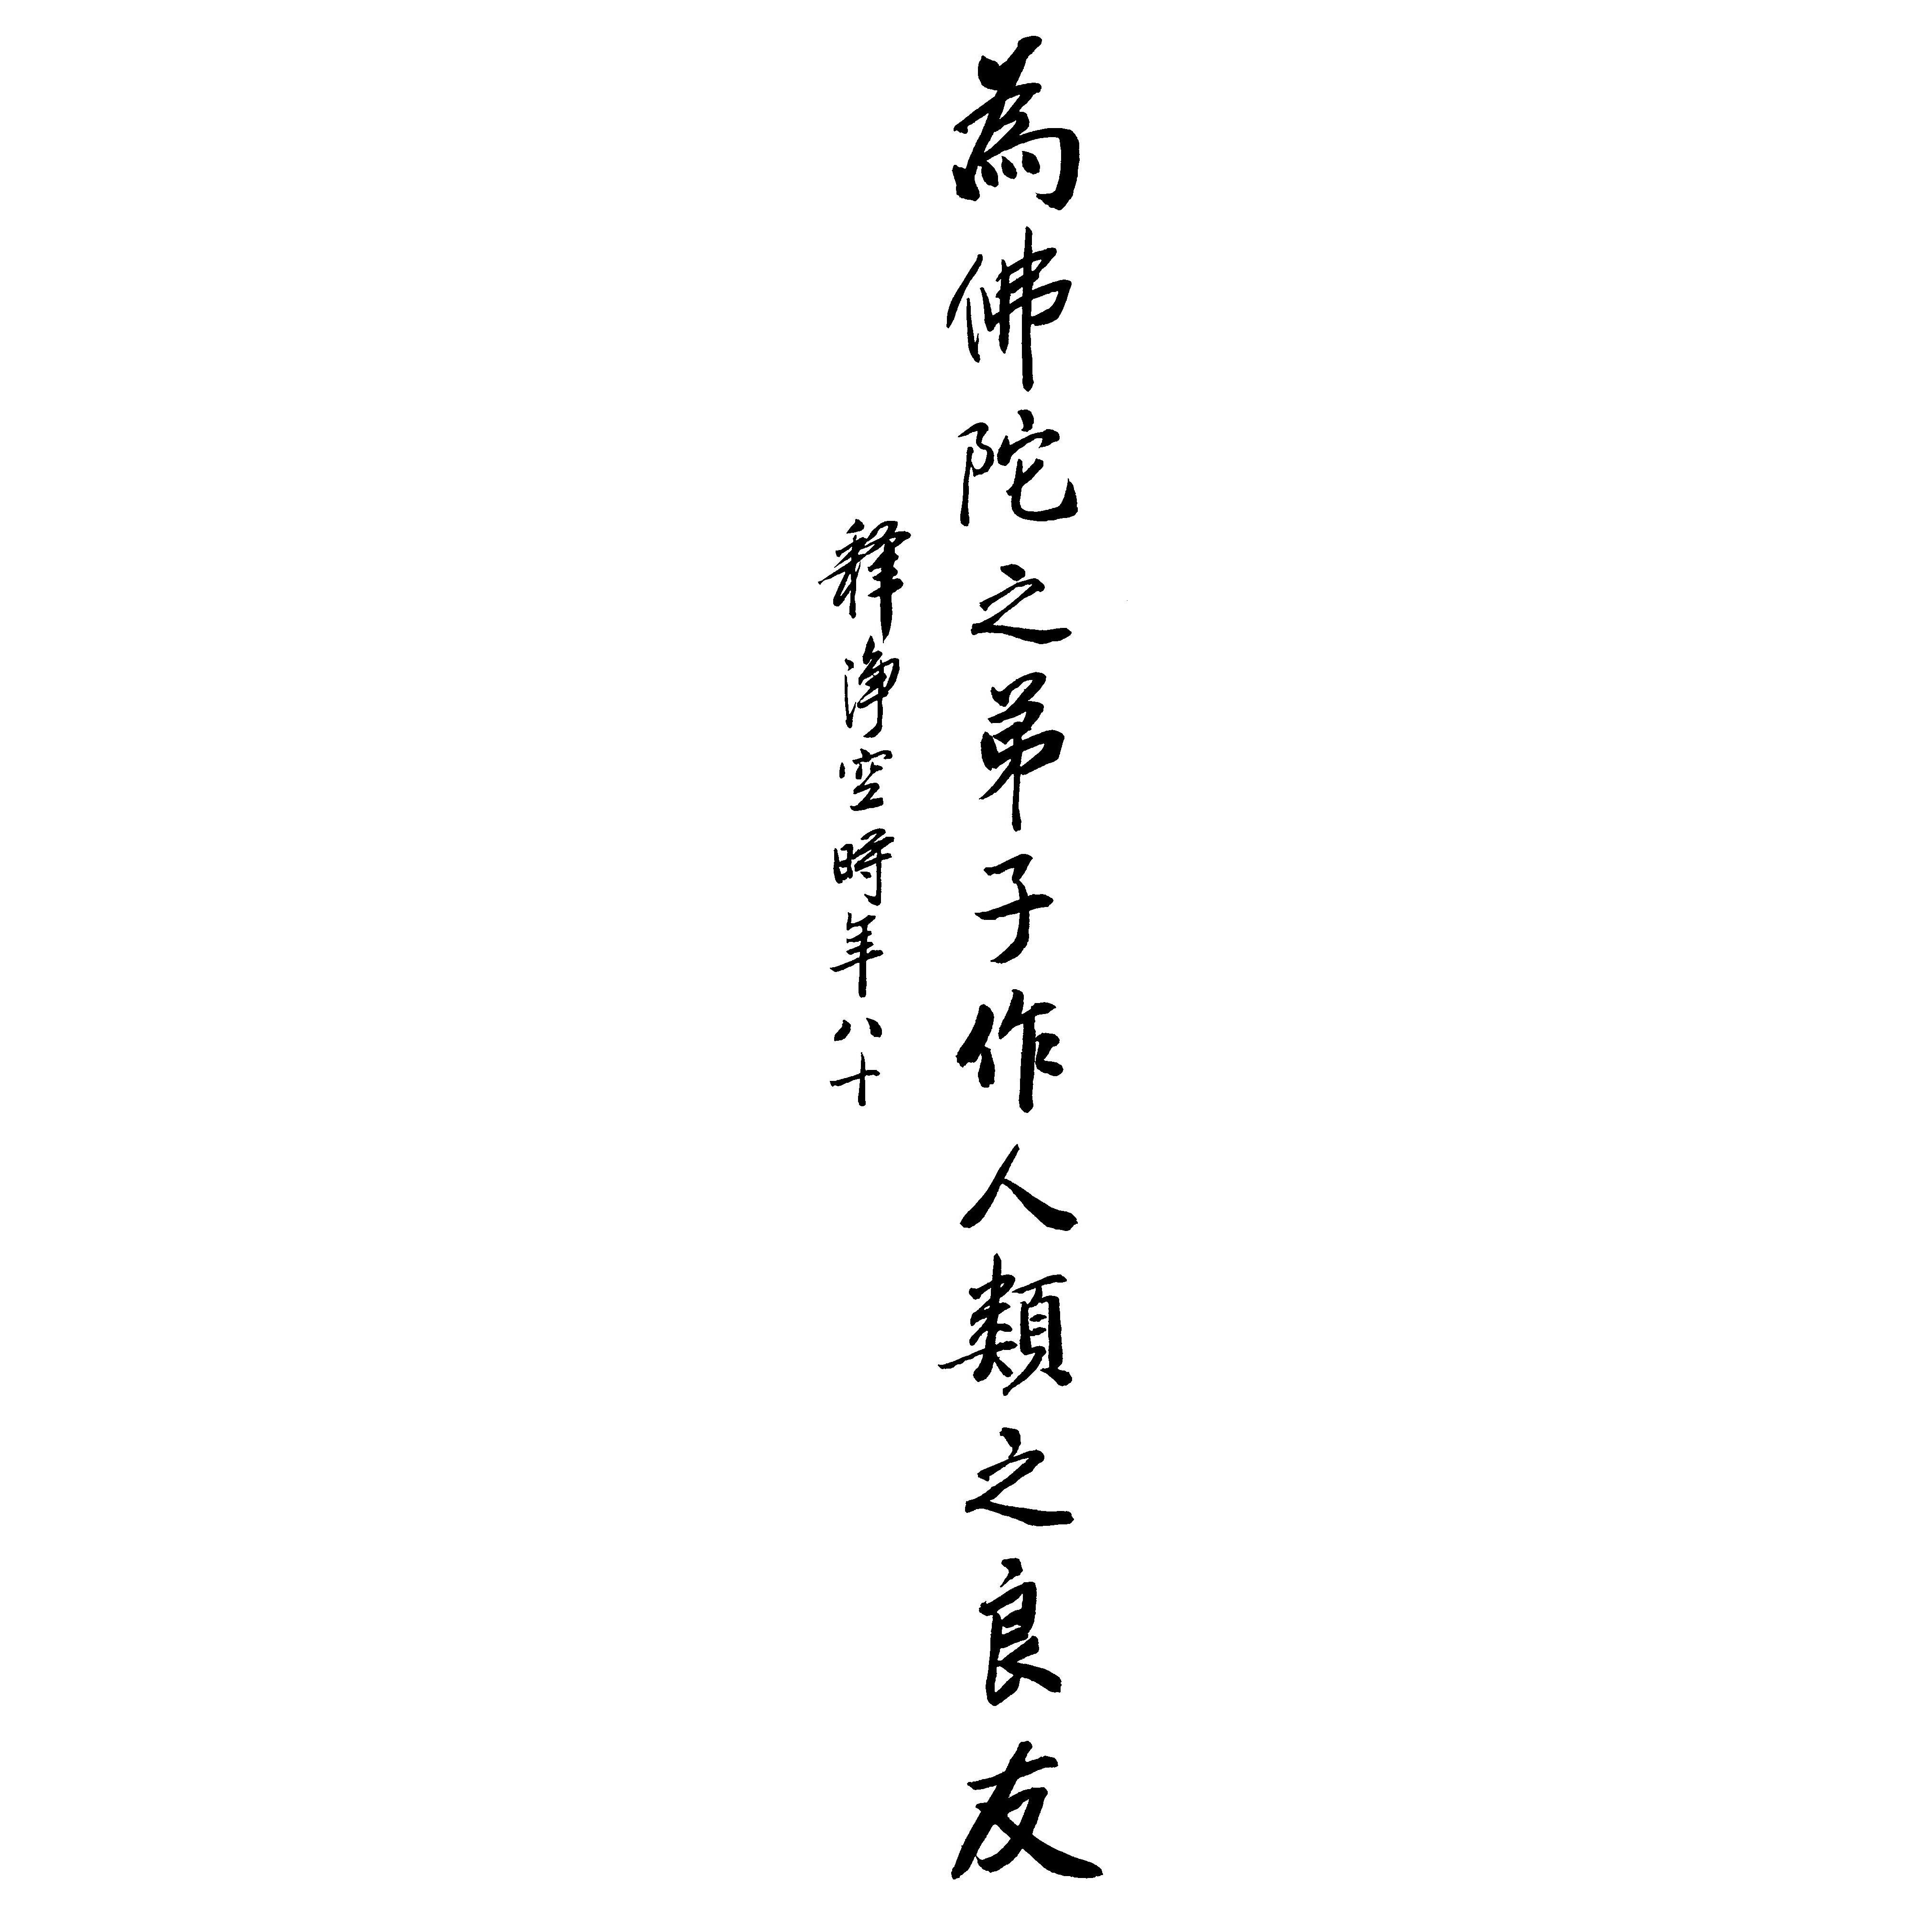 為佛陀之弟子作人類之良友
釋淨空時年八十